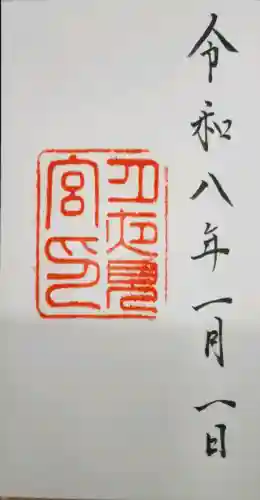 令和八年一月一日
宮印